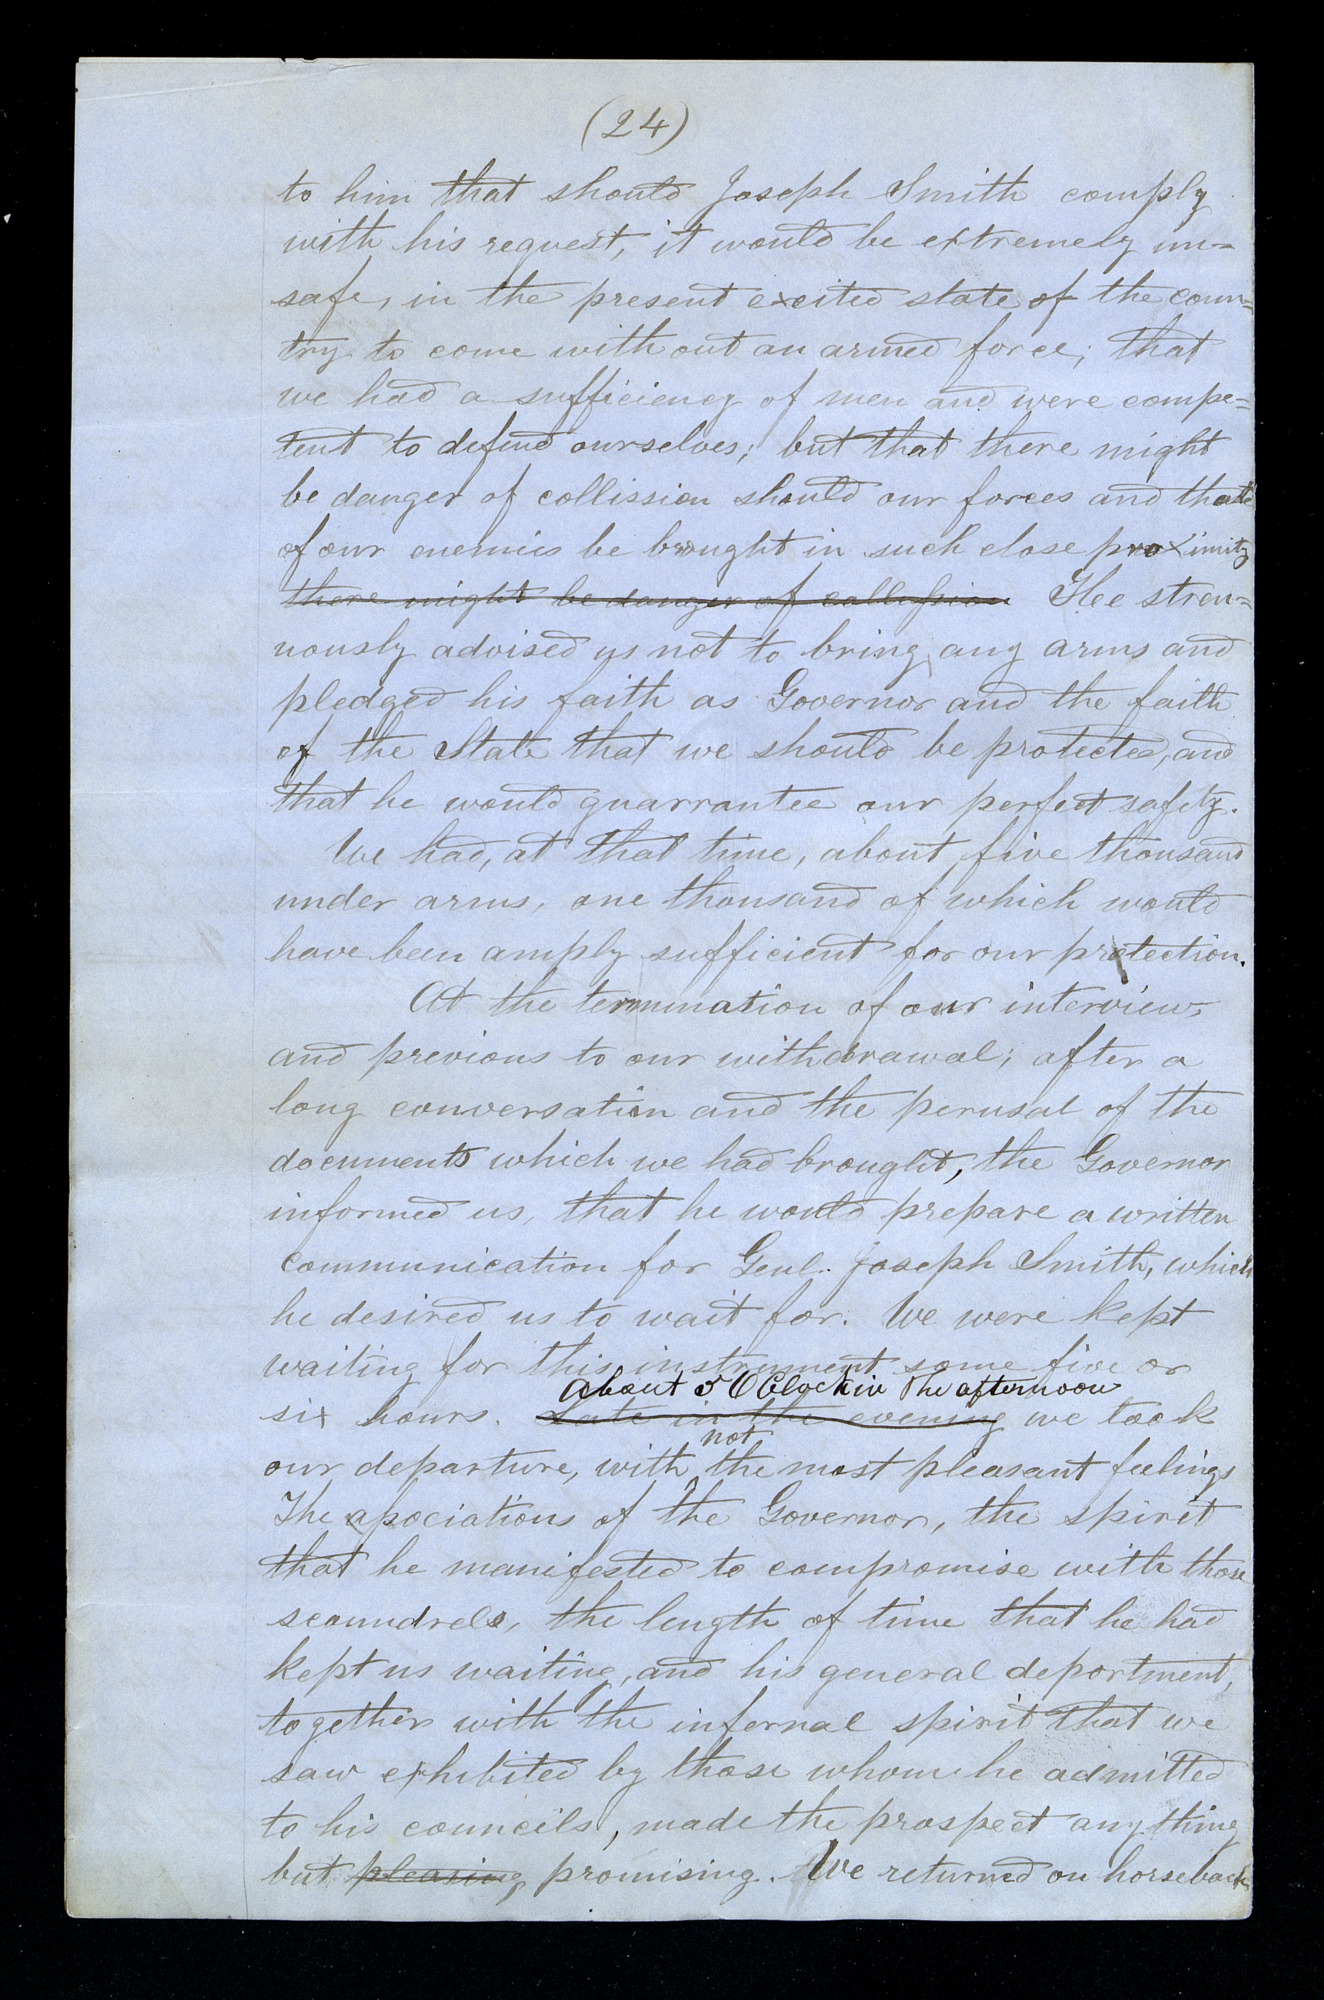 (24)
to him that should Joseph Smith comply
with his request, it would be extremely un=
safe, in the present excited state of the coun=
try to come without an armed force; that
we had a sufficiency of men and were compe=
tent to defend ourselves; but that there might
be danger of collission should our forces and that
of our enemies be brought in such close proximity
there might be danger of collission Hee stren=
uously advised us not to bring any arms and
pledged his faith as Governor and the faith
of the State that we should be protected, and
that he would guarrantee our perfect safety.
We had, at that time, about five thousand
under arms, one thousand of which would
have been amply sufficient for our protection.
At the termination of our interview,
and previous to our withdrawal; after a
long conversation and the perusal of the
documents which we had brought, the Governor
informed us, that he would prepare a written
communication for Genl. Joseph Smith, which
he desired us to wait for. We were kept
waiting for this instrument some five or
About 5 O Clock in the afternoon
six hours. Late in the evening we took
not
our departure, with the most pleasant feelings
The associations of the Governor, the spirit
that he manifested to compromise with those
scoundrels, the length of time that he had
kept us waiting, and his general deportment,
together with the infernal spirit that we
saw exhibited by those whom he admitted
to his councils, made the prospect any thing
but pleasing promising. We returned on horseback